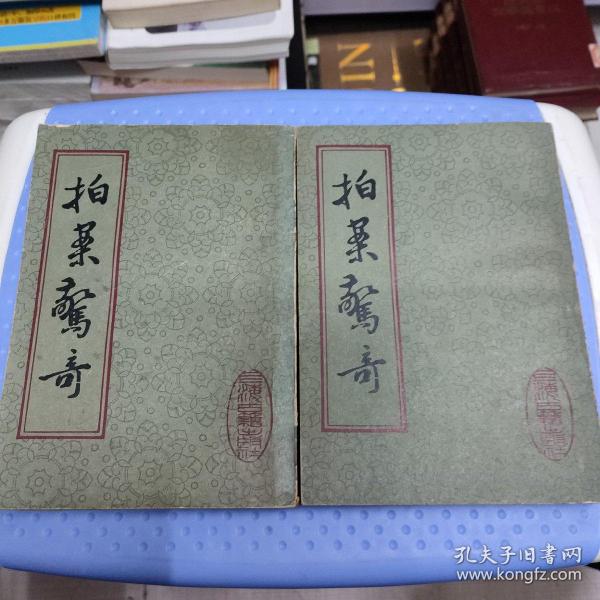 拍案驚奇
拍案驚奇
上海古籍出版社
上海古籍出版社
IN
孔夫子旧书网
www.kongfz.com